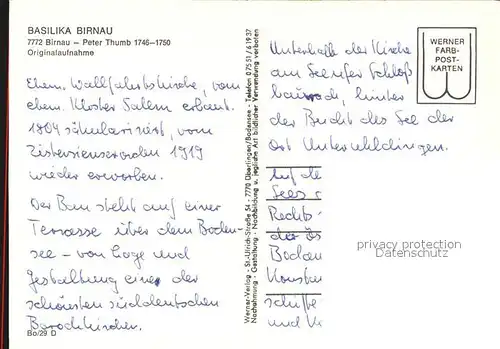 BASILIKA BIRNAU
7772 Birnau – Peter Thumb 1746–1750
Originalaufnahme
Ehem. Wallfahrtskirche, vom
ehem. Kloster Salem erbaut.
1804 säkularisiert, vom
Zisterzienserorden 1919
wieder erworben.
Der Bau steht auf einer
Terrasse über dem Boden-
see – von Lage und
Gestaltung eine der
schönsten süddeutschen
Barockkirchen.
Bo/29 D
Werner-Verlag · St.-Ulrich-Straße 54 · 7770 Überlingen/Bodensee · Telefon 0 75 51/6 19 37
Nachahmung · Gestaltung · Nachbildung u. jegliche Art bildlicher Verwendung verboten
WERNER
FARB-
POST-
KARTEN
Unterhalb der Kirche
am Seeufer Schloß
hinter
der Bucht des See der
Ort Unteruhldingen.
Auf de
Sees
Rechts
der Ös
Boden
Konstan
schiffe
und
privacy protection
Datenschutz